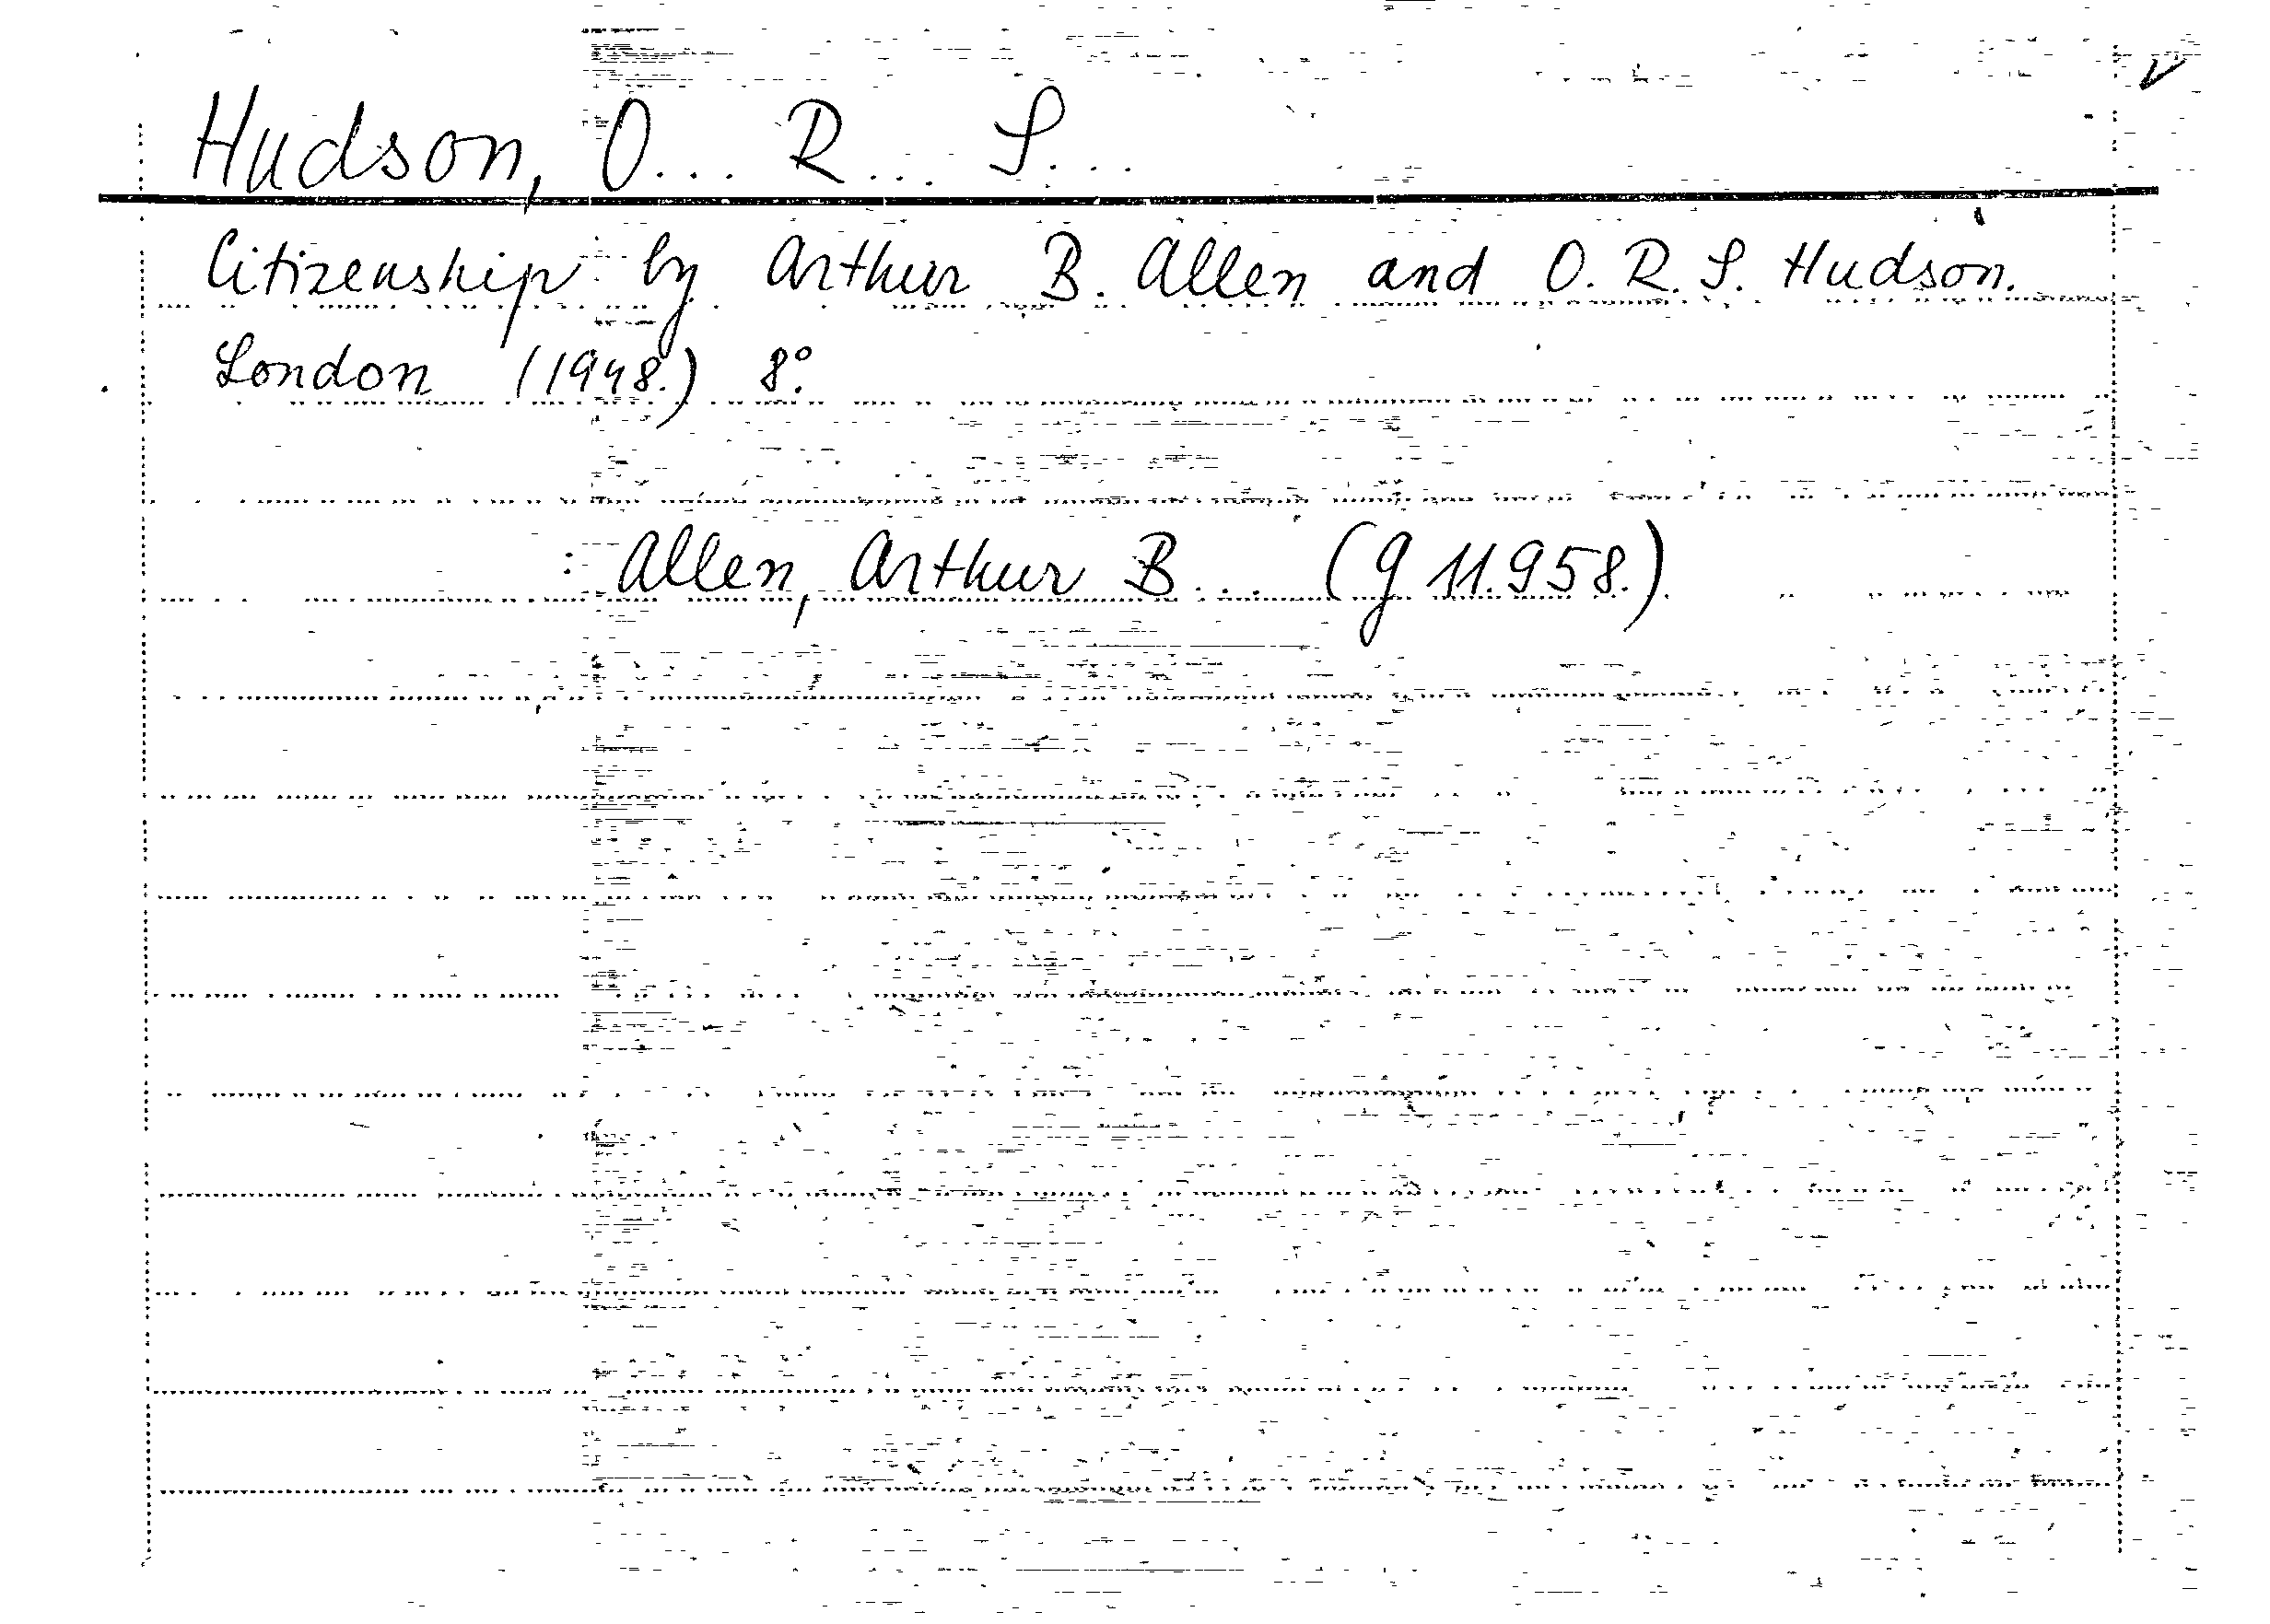 Hudson, O... R... S...
Citizenship by Arthur B. Allen and O. R. S. Hudson.
London (1948.) 8°.
: Allen, Arthur B... (g 11.958.)